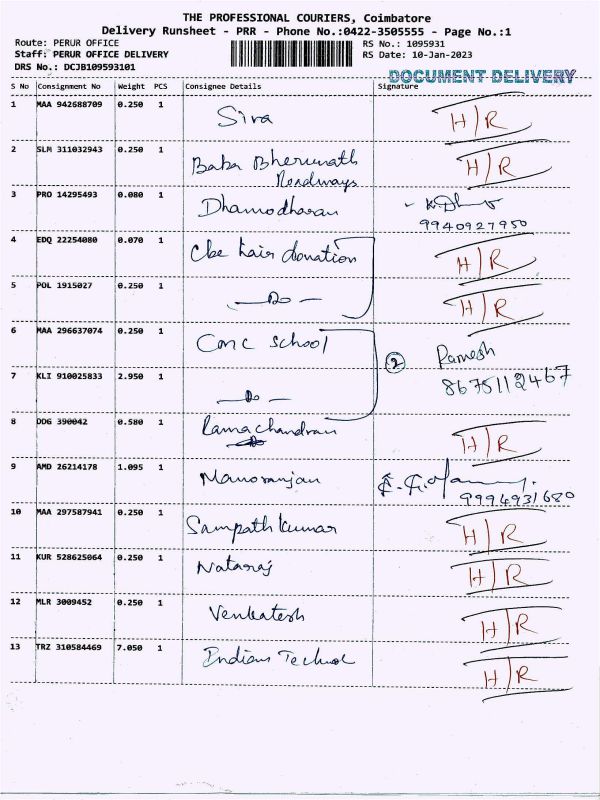 THE PROFESSIONAL COURIERS, Coimbatore
Delivery Runsheet - PRR - Phone No.:0422-3505555 - Page No.:1
Route: PERUR OFFICE RS No.: 1095931
Staff: PERUR OFFICE DELIVERY RS Date: 10-Jan-2023
DRS No.: DCJB109593101 DOCUMENT DELIVERY
S No Consignment No Weight PCS Consignee Details Signature
1 MAA 942688709 0.250 1 Siva H/R
2 SLM 311032943 0.250 1 Baba Bherunath H/R
Roadways
3 PRO 14295493 0.080 1 Dhamodharan
9940927950
4 EDQ 22254080 0.070 1 Cbe hair donation H/R
5 POL 1915027 0.250 1 —Do— H/R
6 MAA 296637074 0.250 1 CMC school 2 Ramesh
8675112467
7 KLI 910025833 2.950 1 —Do—
8 DDG 390042 0.580 1 Ramachandran H/R
9 AMD 26214178 1.095 1 Manoranjan
9994931680
10 MAA 297587941 0.250 1 Sampath kumar H/R
11 KUR 528625064 0.250 1 Nataraj H/R
12 MLR 3009452 0.250 1 Venkatesh H/R
13 TRZ 310584469 7.050 1 Indian Technol H/R